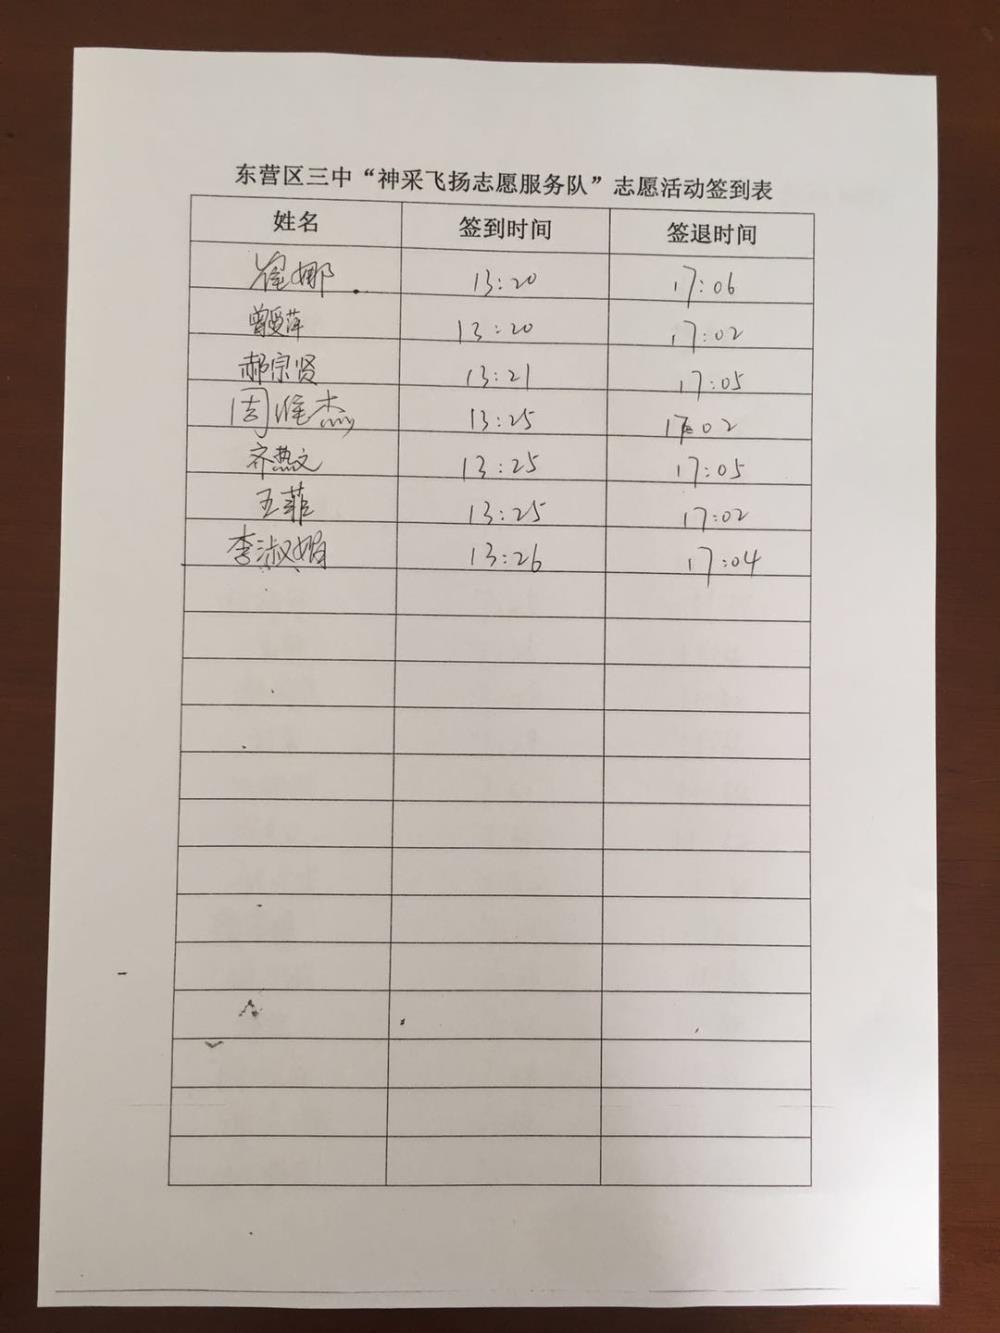 东营区三中“神采飞扬志愿服务队”志愿活动签到表
姓名 签到时间 签退时间
崔娜 13:20 17:06
曾爱萍 13:20 17:02
郝宗贤 13:21 17:05
周维杰 13:25 17:02
齐燕文 13:25 17:05
王菲 13:25 17:02
李淑娟 13:26 17:04